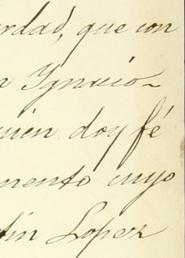 erdad, que con
n Ignacio-
uien doy fé
mento cuyo
tin Lopez